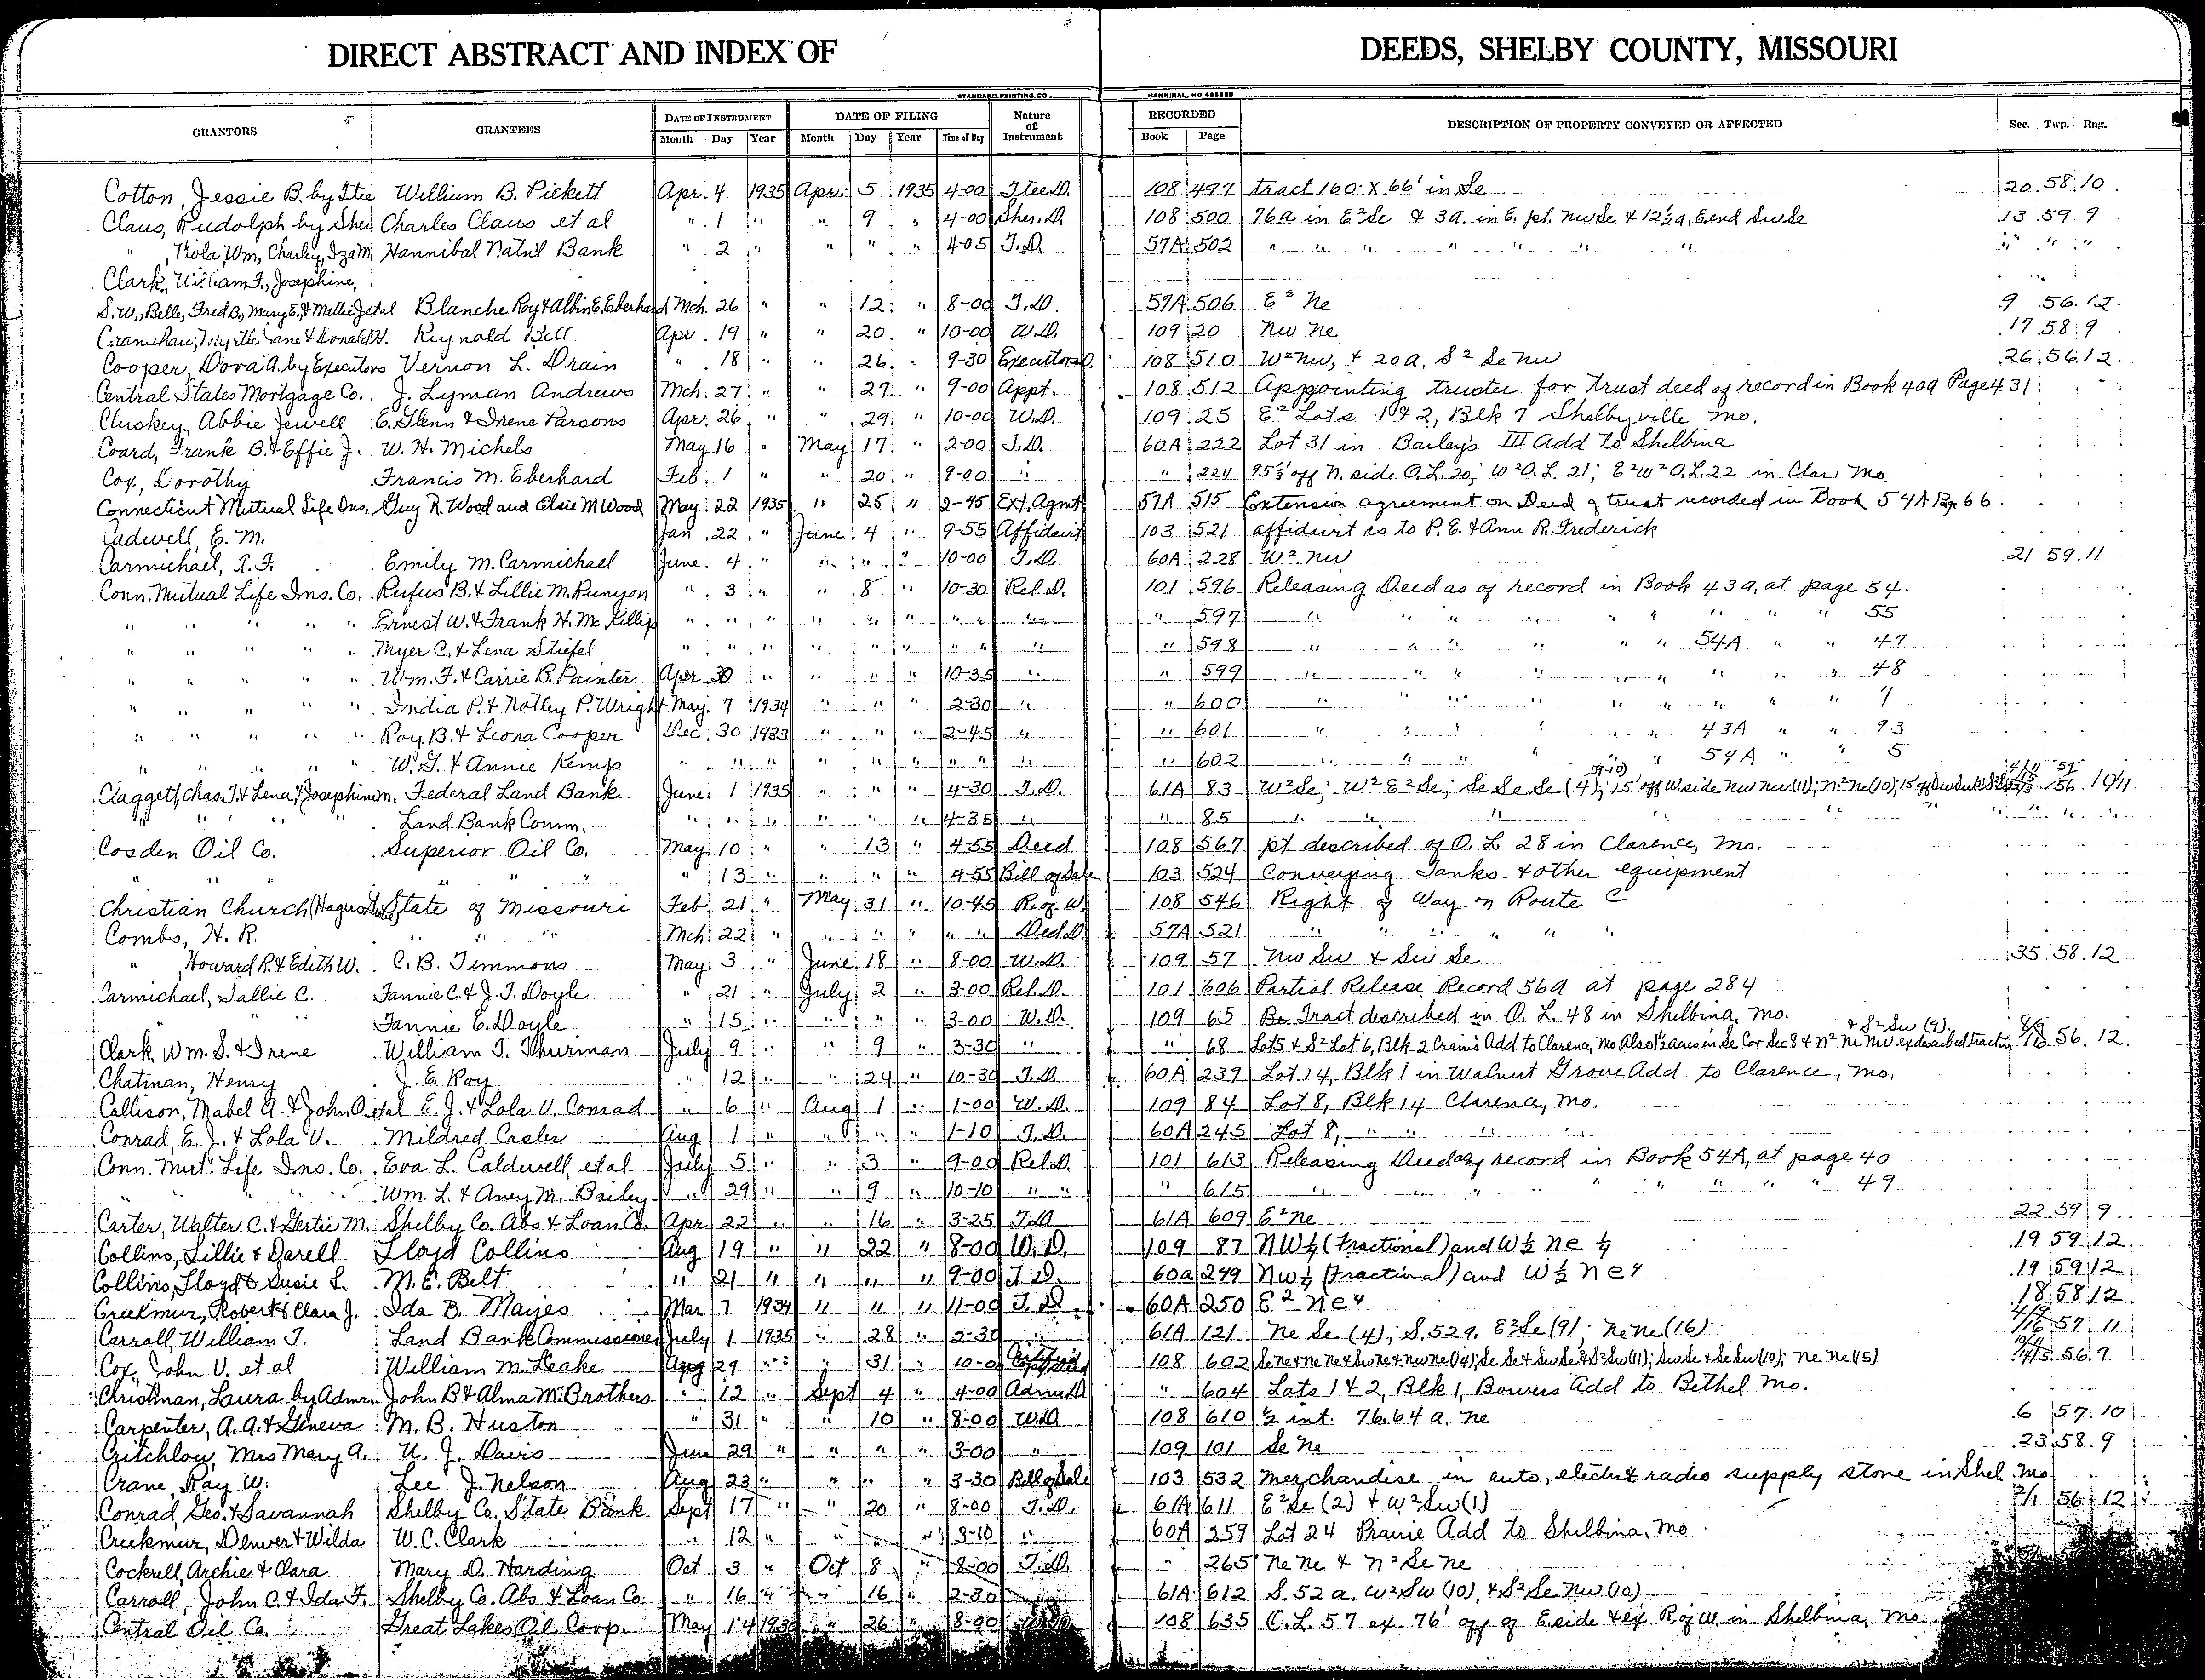 DIRECT ABSTRACT AND INDEX OF DEEDS, SHELBY COUNTY, MISSOURI
STANDARD PRINTING CO. HANNIBAL, MO
GRANTORS GRANTEES DATE OF INSTRUMENT DATE OF FILING Nature of Instrument RECORDED DESCRIPTION OF PROPERTY CONVEYED OR AFFECTED Sec. Twp. Rng.
Month Day Year Month Day Year Time of Day Book Page
Cotton, Jessie B. by Ttee William B. Pickett Apr. 4 1935 Apr. 5 1935 4-00 Ttee D. 108 497 tract 160' X 66' in Se 20 58 10
Claus, Rudolph by Sher Charles Claus et al " 1 " " 9 " 4-00 Sher. D. 108 500 76a in E²Se & 3a. in E. pt. NwSe & 12½a, E end SwSe 13 59 9
" , Viola, Wm, Charley, Iza M. Hannibal Nat'l Bank " 2 " " " " 4-05 T.D. 57A 502 " " " " " " " " " "
Clark, William F., Josephine,
S.W., Belle, Fred B, Mary E, & Mattie J et al Blanche Roy & Albin E. Eberhard Mch. 26 " " 12 " 8-00 T.D. 57A 506 E² Ne 9 56 12
Cranshaw, Myrtle Jane & Donald H. Reynald Bell Apr 19 " " 20 " 10-00 W.D. 109 20 Nw Ne 17 58 9
Cooper, Dora A. by Executors Vernon L. Drain " 18 " " 26 " 9-30 Executors D. 108 510 W²Nw, & 20a. S² Se Nw 26 56 12
Central States Mortgage Co. J. Lyman Andrews Mch 27 " " 27 " 9-00 Appt. 108 512 Appointing trustee for trust deed of record in Book 409 Page 431
Cluskey, Abbie Jewell E. Glenn & Irene Parsons Apr 26 " " 29 " 10-00 W.D. 109 25 E² Lots 1 & 2, Blk 7 Shelbyville Mo.
Coard, Frank B. & Effie J. W. H. Michels May 16 " May 17 " 2-00 T.D. 60A 222 Lot 31 in Bailey's III Add to Shelbina
Cox, Dorothy Francis M. Eberhard Feb 1 " " 20 " 9-00 " " 224 95⅓' off N. side O.L. 20; W²O.L. 21; E²W²O.L. 22 in Clar, Mo.
Connecticut Mutual Life Ins. Guy R. Wood and Elsie M Wood May 22 1935 " 25 " 2-45 Ext. Agmt 57A 515 Extension agreement on Deed of trust recorded in Book 54A Pag. 66
Cadwell, E. M. Jan 22 " June 4 " 9-55 Affidavit 103 521 affidavit as to P. E. & Ann R. Frederick
Carmichael, A. F. Emily M. Carmichael June 4 " " " " 10-00 T.D. 60A 228 W² Nw 21 59 11
Conn. Mutual Life Ins. Co. Rufus B. & Lillie M. Runyon " 3 " " 8 " 10-30 Rel. D. 101 596 Releasing Deed as of record in Book 439, at page 54.
" " " " " Ernest W. & Frank H. McKillip " " " " " " " " " " 597 " " " " " " 55
" " " " " Myer C. & Lena Stiefel " " " " " " " " " " 598 " " " " 54A " " 47
" " " " " Wm. F. & Carrie B. Painter Apr 30 " " " " 10-35 " " 599 " " " " " " " 48
" " " " " India P. & Notley P. Wright May 7 1934 " " " 2-30 " " 600 " " " " " " " 7
" " " " " Roy B. & Leona Cooper Dec 30 1933 " " " 2-45 " " 601 " " " " 43A " " 93
" " " " " W. G. & Annie Kemp " " " " " " " " " " 602 " " " " 54A " " 5
Claggett, Chas. T. & Lena, & Josephine m. Federal Land Bank June 1 1935 " " " 4-30 T.D. 61A 83 W²Se; W²E²Se; Se Se Se (4); 15' off W side Nw Nw (11); N²Ne (10); 56
" " " " Land Bank Comm. " " " " " " 4-35 " " 85 " " " "
Cosden Oil Co. Superior Oil Co. May 10 " " 13 " 4-55 Deed 108 567 pt described of O. L. 28 in Clarence, Mo.
" " " " " " " 13 " " " " 4-55 Bill of Sale 103 524 Conveying Tanks & other equipment
Christian Church State of Missouri Feb 21 " May 31 " 10-45 R. of W. 108 546 Right of Way on Route C
Combs, H. R. " " " Mch 22 " " " " " " Ded D. 57A 521 " " " " " "
" , Howard R. & Edith W. C. B. Timmons May 3 " June 18 " 8-00 W.D. 109 57 Nw Sw & Sw Se 35 58 12
Carmichael, Sallie C. Fannie C. & J. T. Doyle " 21 " July 2 " 3-00 Rel. D. 101 606 Partial Release Record 569 at page 284
Fannie C. Doyle " 15 " " " " 3-00 W.D. 109 65 Tract described in O. L. 48 in Shelbina, Mo.
Clark, Wm. S. & Irene William T. Thurman July 9 " " 9 " 3-30 " " 68 Lot 5 & S² Lot 6, Blk 2 Crain's Add to Clarence, Mo Also 1½ acres in Se Cor Sec 8 & N² Ne Nw ex described tract in & S² Sw (9) 56 12
Chatman, Henry J. E. Roy " 12 " " 24 " 10-30 T.D. 60A 239 Lot 14, Blk 1 in Walnut Grove Add to Clarence, Mo.
Collison, Mabel A. & John A et al E. J. & Lola V. Conrad " 6 " Aug 1 " 1-00 W.D. 109 84 Lot 8, Blk 14 Clarence, Mo.
Conrad, E. J. & Lola V. Mildred Casler Aug 1 " " " " 1-10 T.D. 60A 245 Lot 8, " " " "
Conn. Mut. Life Ins. Co. Eva L. Caldwell, et al July 5 " " 3 " 9-00 Rel D. 101 613 Releasing Deed of record in Book 54A, at page 40
" " " " Wm. L. & Aney M. Bailey " 29 " " 9 " 10-10 " " " 615 " " " " " " " 49
Carter, Walter C. & Gertie M. Shelby Co. Abs & Loan Co. Apr 22 " " 16 " 3-25 T.D 61A 609 E²Ne 22 59 9
Collins, Lillie & Darell Lloyd Collins Aug 19 " " 22 " 8-00 W.D. 109 87 NW¼ (Fractional) and W½ Ne ¼ 19 59 12
Collins, Lloyd & Susie L. M. E. Belt " 21 " " " " 9-00 T.D. 60a 249 NW¼ (Fractional) and W½ Ne 4 19 59 12
Creekmur, Robert & Clara J. Ida B. Mayes Mar 7 1934 " " " 11-00 T.D. 60A 250 E² Ne 4 18 58 12
Carrall, William T. Land Bank Commissioner July 1 1935 " 28 " 2-30 " 61A 121 Ne Se (4); S. 529. E²Se (9); Ne Ne (16) 4/9/16 57 11
Cox, John V. et al William M. Leake Aug 29 " " 31 " 10-0 108 602 Se Ne & Ne Ne & Sw Ne & Nw Ne (14); Se Se & Sw Se & S²Sw (11); Sw Se & Se Sw (10); Ne Ne (15) 56 9
Christman, Laura by Admr John B & Alma M. Brothers " 12 " Sept 4 " 4-00 Adm. D " 604 Lots 1 & 2, Blk 1, Bowers Add to Bethel Mo.
Carpenter, A. A. & Geneva M. B. Huston " 31 " " 10 " 8-00 W.D 108 610 ½ int. 76.64 a. Ne 6 57 10
Critchlow, Mrs Mary A. U. J. Davis June 29 " " " " 3-00 " 109 101 Se Ne 23 58 9
Crane, Ray W. Lee J. Nelson Aug 23 " " " " 3-30 Bill of Sale 103 532 Merchandise in auto, electric & radio supply store in Shel Mo
Conrad, Geo. & Savannah Shelby Co. State Bank Sept 17 " " 20 " 8-00 T.D. 61A 611 E²Se (2) & W²Sw (1) 2/1 56 12
Creekmur, Denver & Wilda W. C. Clark " 12 " " " " 3-10 " 60A 259 Lot 24 Prairie Add to Shelbina, Mo
Cockrell, Archie & Clara Mary D. Harding Oct 3 " Oct 8 " 8-00 T.D. " 265 Ne Ne & N² Se Ne
Carroll, John C. & Ida F. Shelby Co. Abs & Loan Co. " 16 " " 16 " 2-30 61A 612 S. 52 a. W²Sw (10), & S² Se Nw (10)
Central Oil Co. Great Lakes Oil Corp. May 14 " 26 " 8-00 108 635 O. L. 57 ex. 76' off of E side & ex R. of W. in Shelbina, Mo.